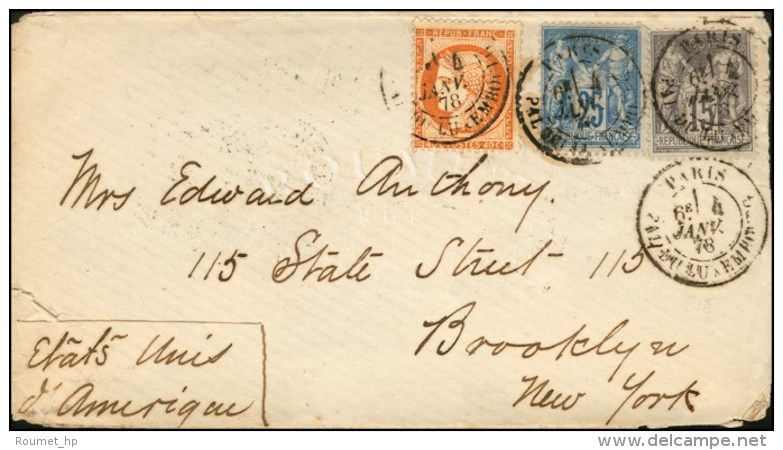 REPUB. FRANC.
POSTES 40 C
4
JANV.
78
DU LUXEMBOU
PARIS
6E 4
25
REPUBLIQUE FRANÇAISE
PARIS
6E 4
15
REPUBLIQUE FRANÇAISE
PARIS
6E 4
JANV.
78
PAL. DU LUXEMBOURG
Mrs Edward Anthony.
115 State Street 115
Brooklyn
New York
Etats Unis
d'Amerique
Roumet_hp
delcampe.net